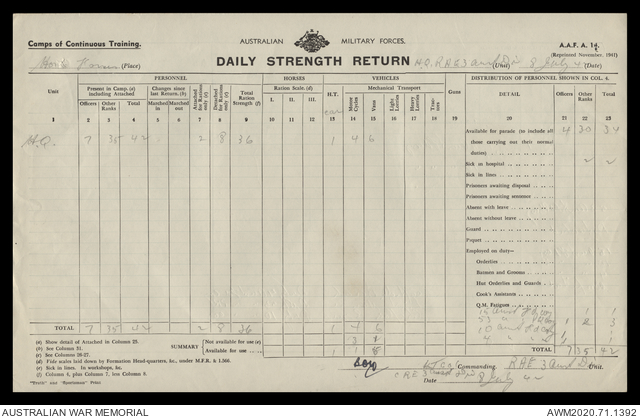 Camps of Continuous Training.
AUSTRALIAN MILITARY FORCES.
A.A.F. A. 14.
(Reprinted November, 1941)
DAILY STRENGTH RETURN
(Place)
H.Q. RAE 3 Aust Div (Unit) 8 July 42 (Date)
PERSONNEL
HORSES
VEHICLES
DISTRIBUTION OF PERSONNEL SHOWN IN COL. 4.
Unit
Present in Camp, (a) including Attached
Changes since last Return. (b)
Attached for Rations only (c)
Detached for Rations only (d)
Total Ration Strength (f)
Ration Scale. (d)
H.T.
Mechanical Transport
Guns
DETAIL
Officers
Other Ranks
Total
Officers
Other Ranks
Total
Marched in
Marched out
I.
II.
III.
Motor Cycles
Vans
Light Lorries
Heavy Lorries
Tractors
1 2 3 4 5 6 7 8 9 10 11 12 13 14 15 16 17 18 19 20 21 22 23
car
H.Q. 7 35 42 2 8 36 1 4 6
Available for parade (to include all those carrying out their normal duties) 4 30 34
Sick in hospital 2 2
Sick in lines
Prisoners awaiting disposal
Prisoners awaiting sentence
Absent with leave
Absent without leave
Guard
Piquet
Employed on duty—
Orderlies
Batmen and Grooms
Hut Orderlies and Guards
Cook's Assistants
Q.M. Fatigues
1 1
1 2 3
1 1
1 1
TOTAL 7 35 42 2 8 36 1 4 6
TOTAL 7 35 42
SUMMARY
Not available for use (e)
Available for use
(a) Show detail of Attached in Column 23.
(b) See Column 31.
(c) See Columns 26-27.
(d) Fide scales laid down by Formation Head-quarters, &c., under M.F.R. & I.560.
(e) Sick in lines. In workshops, &c.
(f) Column 4, plus Column 7, less Column 8.
"Truth" and "Sportsman" Print
Commanding RAE 3 Aust Div Unit.
Date 8 July 42
AUSTRALIAN WAR MEMORIAL
AWM2020.71.1392